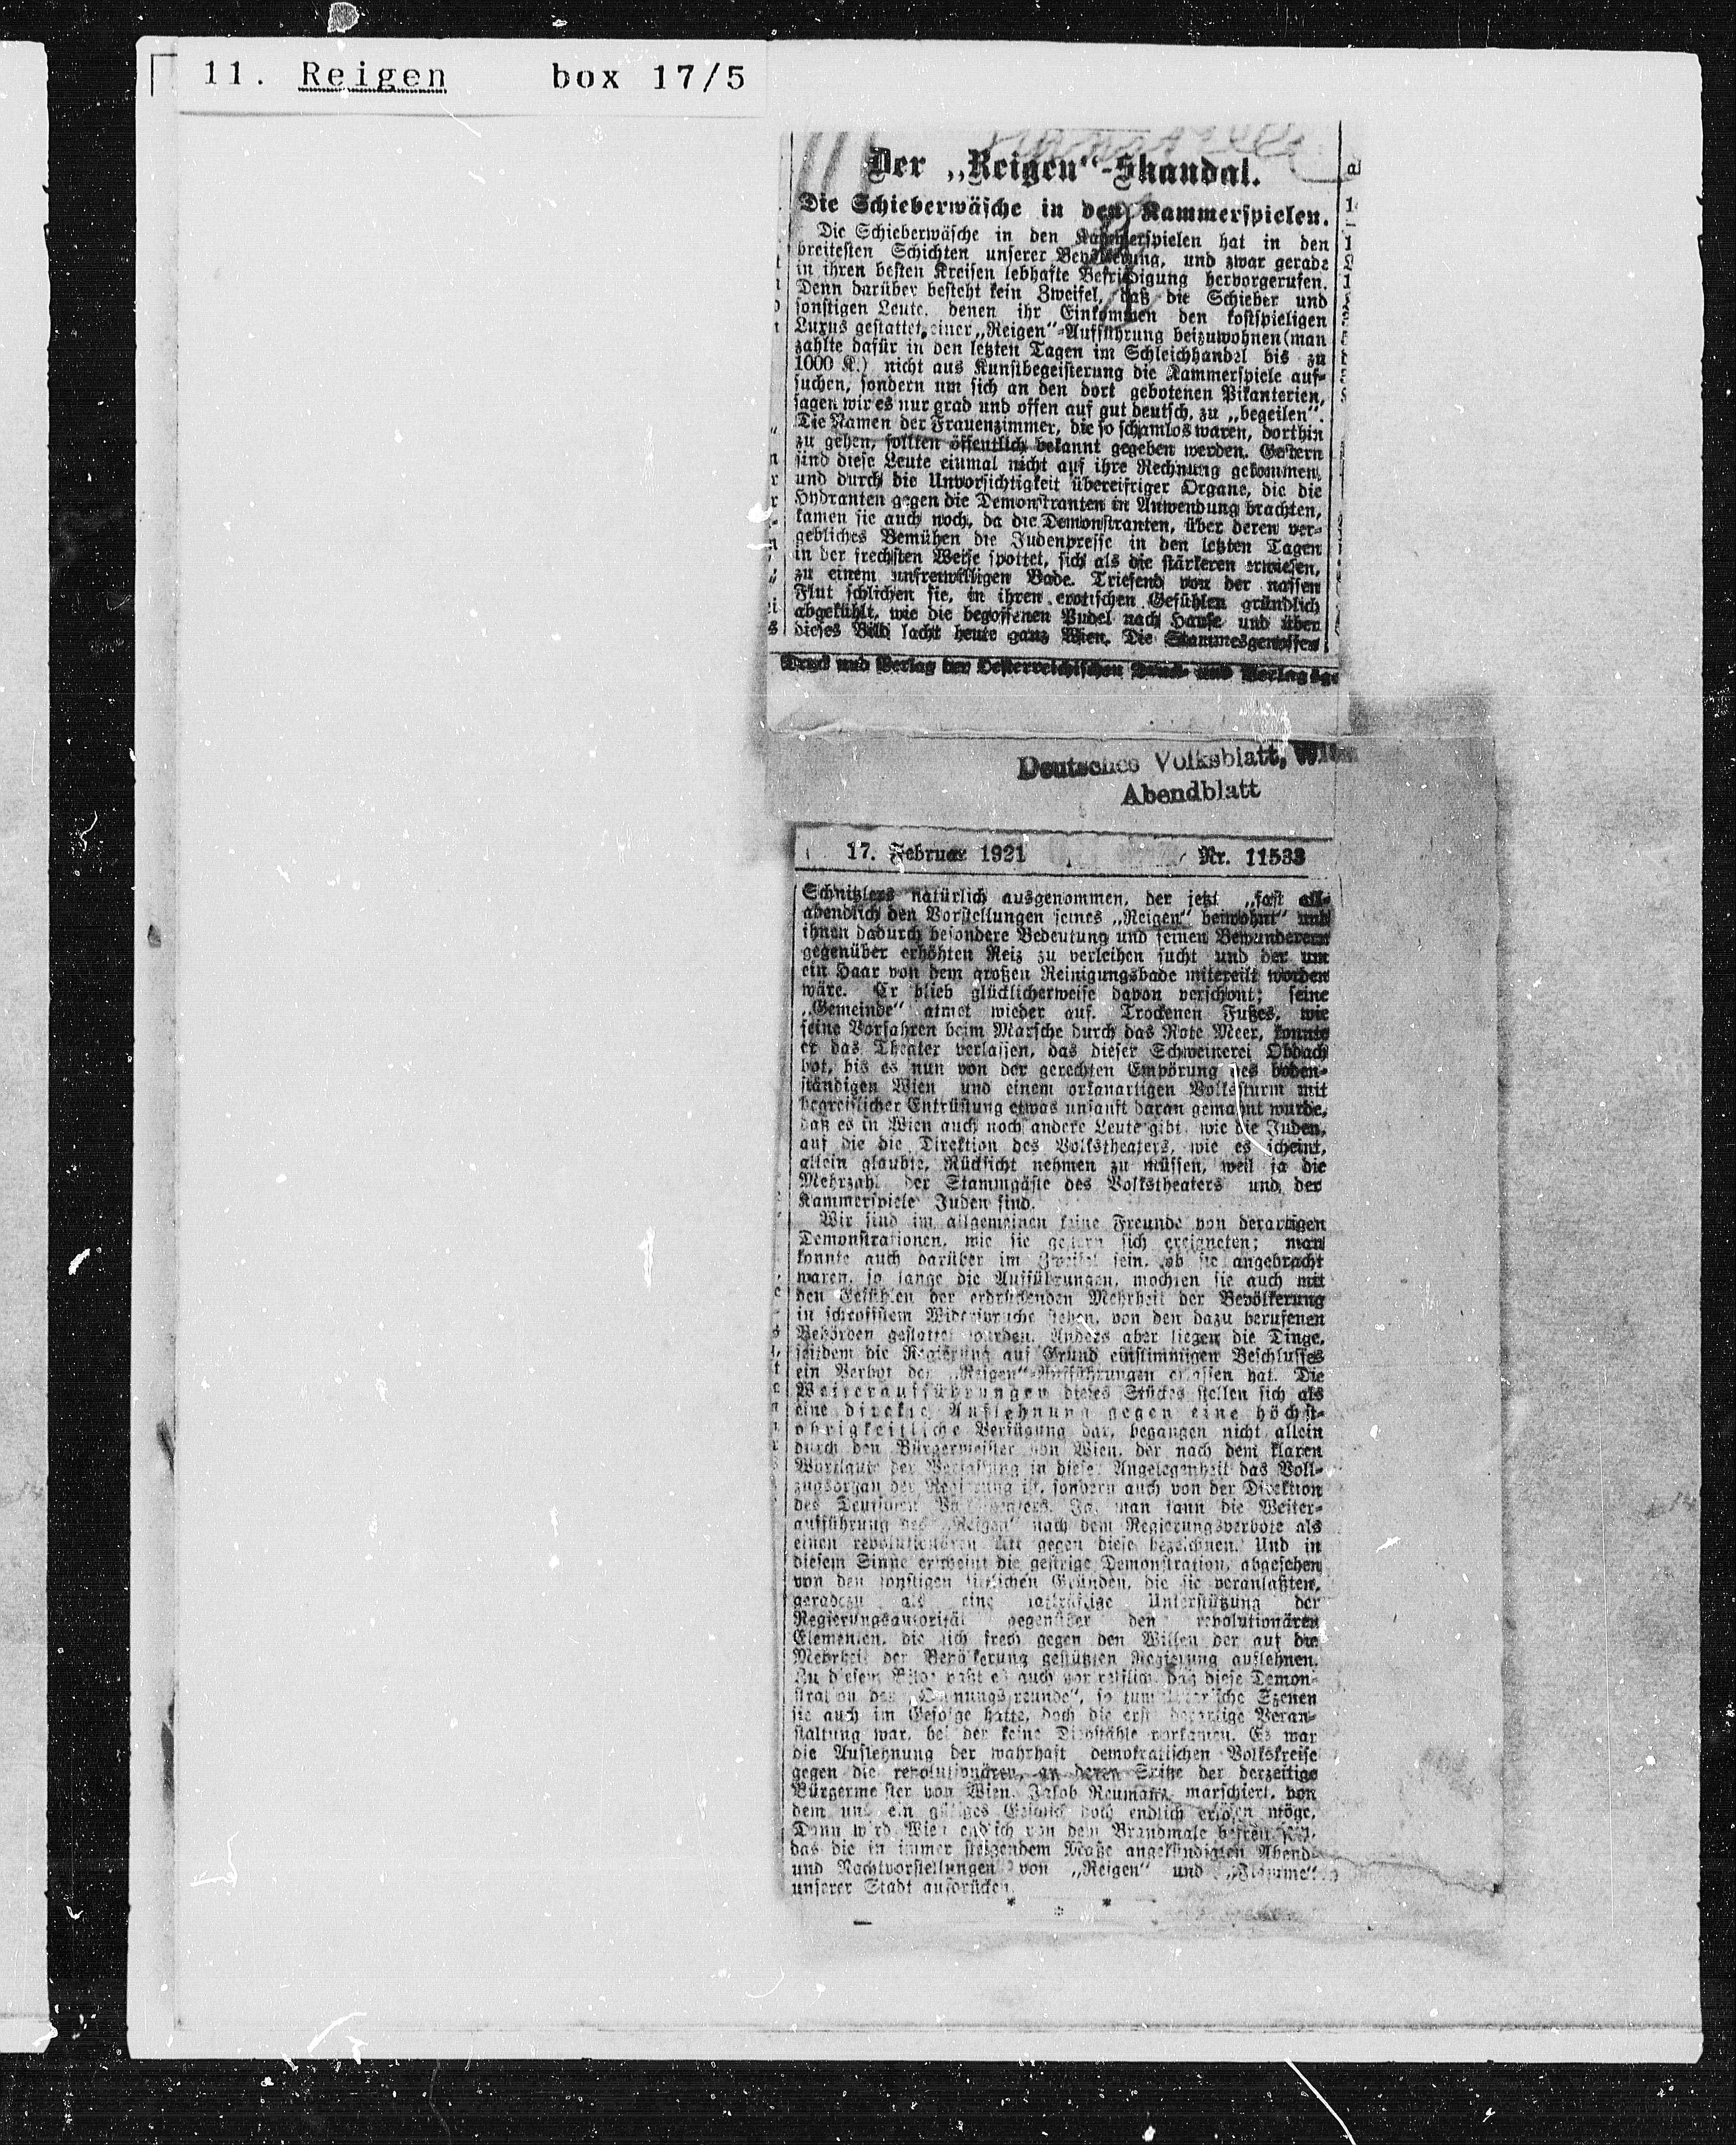 11. Reigen box 17/5
Der „Reigen"-Skandal.
Die Schieberwäsche in den Kammerspielen.
Die Schieberwäsche in den Kammerspielen hat in den
breitesten Schichten unserer Bevölkerung, und zwar gerade
in ihren besten Kreisen lebhafte Befriedigung hervorgerufen.
Denn darüber besteht kein Zweifel, daß die Schieber und
sonstigen Leute, denen ihr Einkommen den kostspieligen
Luxus gestattet, einer „Reigen"-Aufführung beizuwohnen (man
zahlte dafür in den letzten Tagen im Schleichhandel bis zu
1000 K.) nicht aus Kunstbegeisterung die Kammerspiele auf-
suchen, sondern um sich an den dort gebotenen Pikanterien,
sagen wir es nur grad und offen auf gut deutsch, zu „begeilen".
Die Namen der Frauenzimmer, die so schamlos waren, dorthin
zu gehen, sollten öffentlich bekannt gegeben werden. Gestern
sind diese Leute einmal nicht auf ihre Rechnung gekommen,
und durch die Unvorsichtigkeit übereifriger Organe, die die
Hydranten gegen die Demonstranten in Anwendung brachten,
kamen sie auch noch, da die Demonstranten, über deren ver-
gebliches Bemühen die Judenpresse in den letzten Tagen
in der frechsten Weise spottet, sich als die stärkeren erwiesen,
zu einem unfreiwilligen Bade. Triefend von der nassen
Flut schlichen sie, in ihren erotischen Gefühlen gründlich
abgekühlt, wie die begossenen Pudel nach Hause und über
dieses Bild lacht heute ganz Wien. Die Stammesgenossen
Druck und Verlag der Oesterreichischen Druck- und Verlagsge
Deutsches Volksblatt, Wien
Abendblatt
17. Februar 1921 Nr. 11533
Schnitzlers natürlich ausgenommen, der jetzt „fast all-
abendlich den Vorstellungen seines „Reigen" beiwohnt" und
ihnen dadurch besondere Bedeutung und seinen Bewunderern
gegenüber erhöhten Reiz zu verleihen sucht und der um
ein Haar von dem großen Reinigungsbade mitereilt worden
wäre. Er blieb glücklicherweise davon verschont; seine
„Gemeinde" atmet wieder auf. Trockenen Fußes, wie
seine Vorfahren beim Marsche durch das Rote Meer, konnte
er das Theater verlassen, das dieser Schweinerei Obdach
bot, bis es nun von der gerechten Empörung des boden-
ständigen Wien und einem orkanartigen Volkssturm mit
begreiflicher Entrüstung etwas unsanft daran gemahnt wurde,
daß es in Wien auch noch andere Leute gibt, wie die Juden,
auf die die Direktion des Volkstheaters, wie es scheint,
allein glaubte, Rücksicht nehmen zu müssen, weil ja die
Mehrzahl der Stammgäste des Volkstheaters und der
Kammerspiele Juden sind.
Wir sind im allgemeinen keine Freunde von derartigen
Demonstrationen, wie sie gestern sich ereigneten; man
konnte auch darüber im Zweifel sein, ob sie angebracht
waren, so lange die Aufführungen, mochten sie auch mit
den Gefühlen der erdrückenden Mehrheit der Bevölkerung
in schroffstem Widerspruche stehen, von den dazu berufenen
Behörden gestattet wurden. Anders aber liegen die Dinge,
seitdem die Regierung auf Grund einstimmigen Beschlusses
ein Verbot der „Reigen"-Aufführungen erlassen hat. Die
Weiteraufführungen dieses Stückes stellen sich als
eine direkte Auflehnung gegen eine höchst-
obrigkeitliche Verfügung dar, begangen nicht allein
durch den Bürgermeister von Wien, der nach dem klaren
Wortlaute der Verfassung in dieser Angelegenheit das Voll-
zugsorgan der Regierung ist, sondern auch von der Direktion
des Deutschen Volkstheaters. Ja, man kann die Weiter-
aufführung des „Reigen" nach dem Regierungsverbote als
einen revolutionären Akt gegen diese bezeichnen. Und in
diesem Sinne erscheint die gestrige Demonstration, abgesehen
von den sonstigen sittlichen Gründen, die sie veranlaßten,
geradezu als eine tatkräftige Unterstützung der
Regierungsautorität gegenüber den revolutionären
Elementen, die sich frech gegen den Willen der auf die
Mehrheit der Bevölkerung gestützten Regierung auflehnen.
Zu diesem Bilde paßt es auch vortrefflich, daß diese Demon-
stration der „Ordnungsfreunde", so tumultuarische Szenen
sie auch im Gefolge hatte, doch die erste derartige Veran-
staltung war, bei der keine Diebstähle vorkamen. Es war
die Auflehnung der wahrhaft demokratischen Volkskreise
gegen die revolutionären, an deren Spitze der derzeitige
Bürgermeister von Wien, Jakob Reumann, marschiert, von
dem uns ein gütiges Geschick doch endlich erlösen möge.
Dann wird Wien endlich von dem Brandmale befreit sein,
das die in immer steigendem Maße angekündigten Abend-
und Nachtvorstellungen von „Reigen" und „Flamme"
unserer Stadt aufdrücken.
* * *